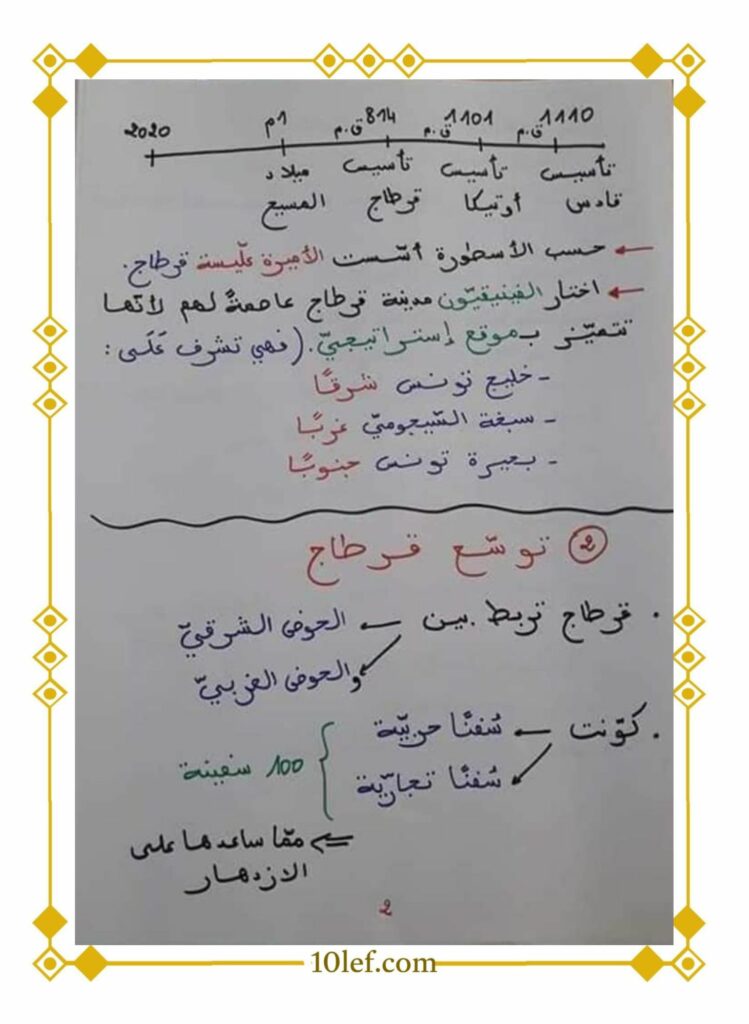 1110 ق.م 1101 ق.م 814 ق.م 1م 2020
تأسيس تأسيس تأسيس ميلاد
قادس أوتيكا قرطاج المسيح
← حسب الأسطورة أسّست الأميرة علّيسة قرطاج.
← اختار الفينيقيّون مدينة قرطاج عاصمةً لهم لأنّها
تتميّز بموقع إستراتيجيّ. (فهي تشرف عَلَى :
- خليج تونس شرقًا
- سبخة السّيجوميّ غربًا
- بحيرة تونس جنوبًا
2 توسّع قرطاج
. قرطاج تربط بين ← الحوض الشرقيّ
والحوض الغربيّ
. كوّنت ← سُفنًا حربيّة
سُفنًا تجاريّة } 100 سفينة
⇐ ممّا ساعدها على
الازدهار
2
10lef.com